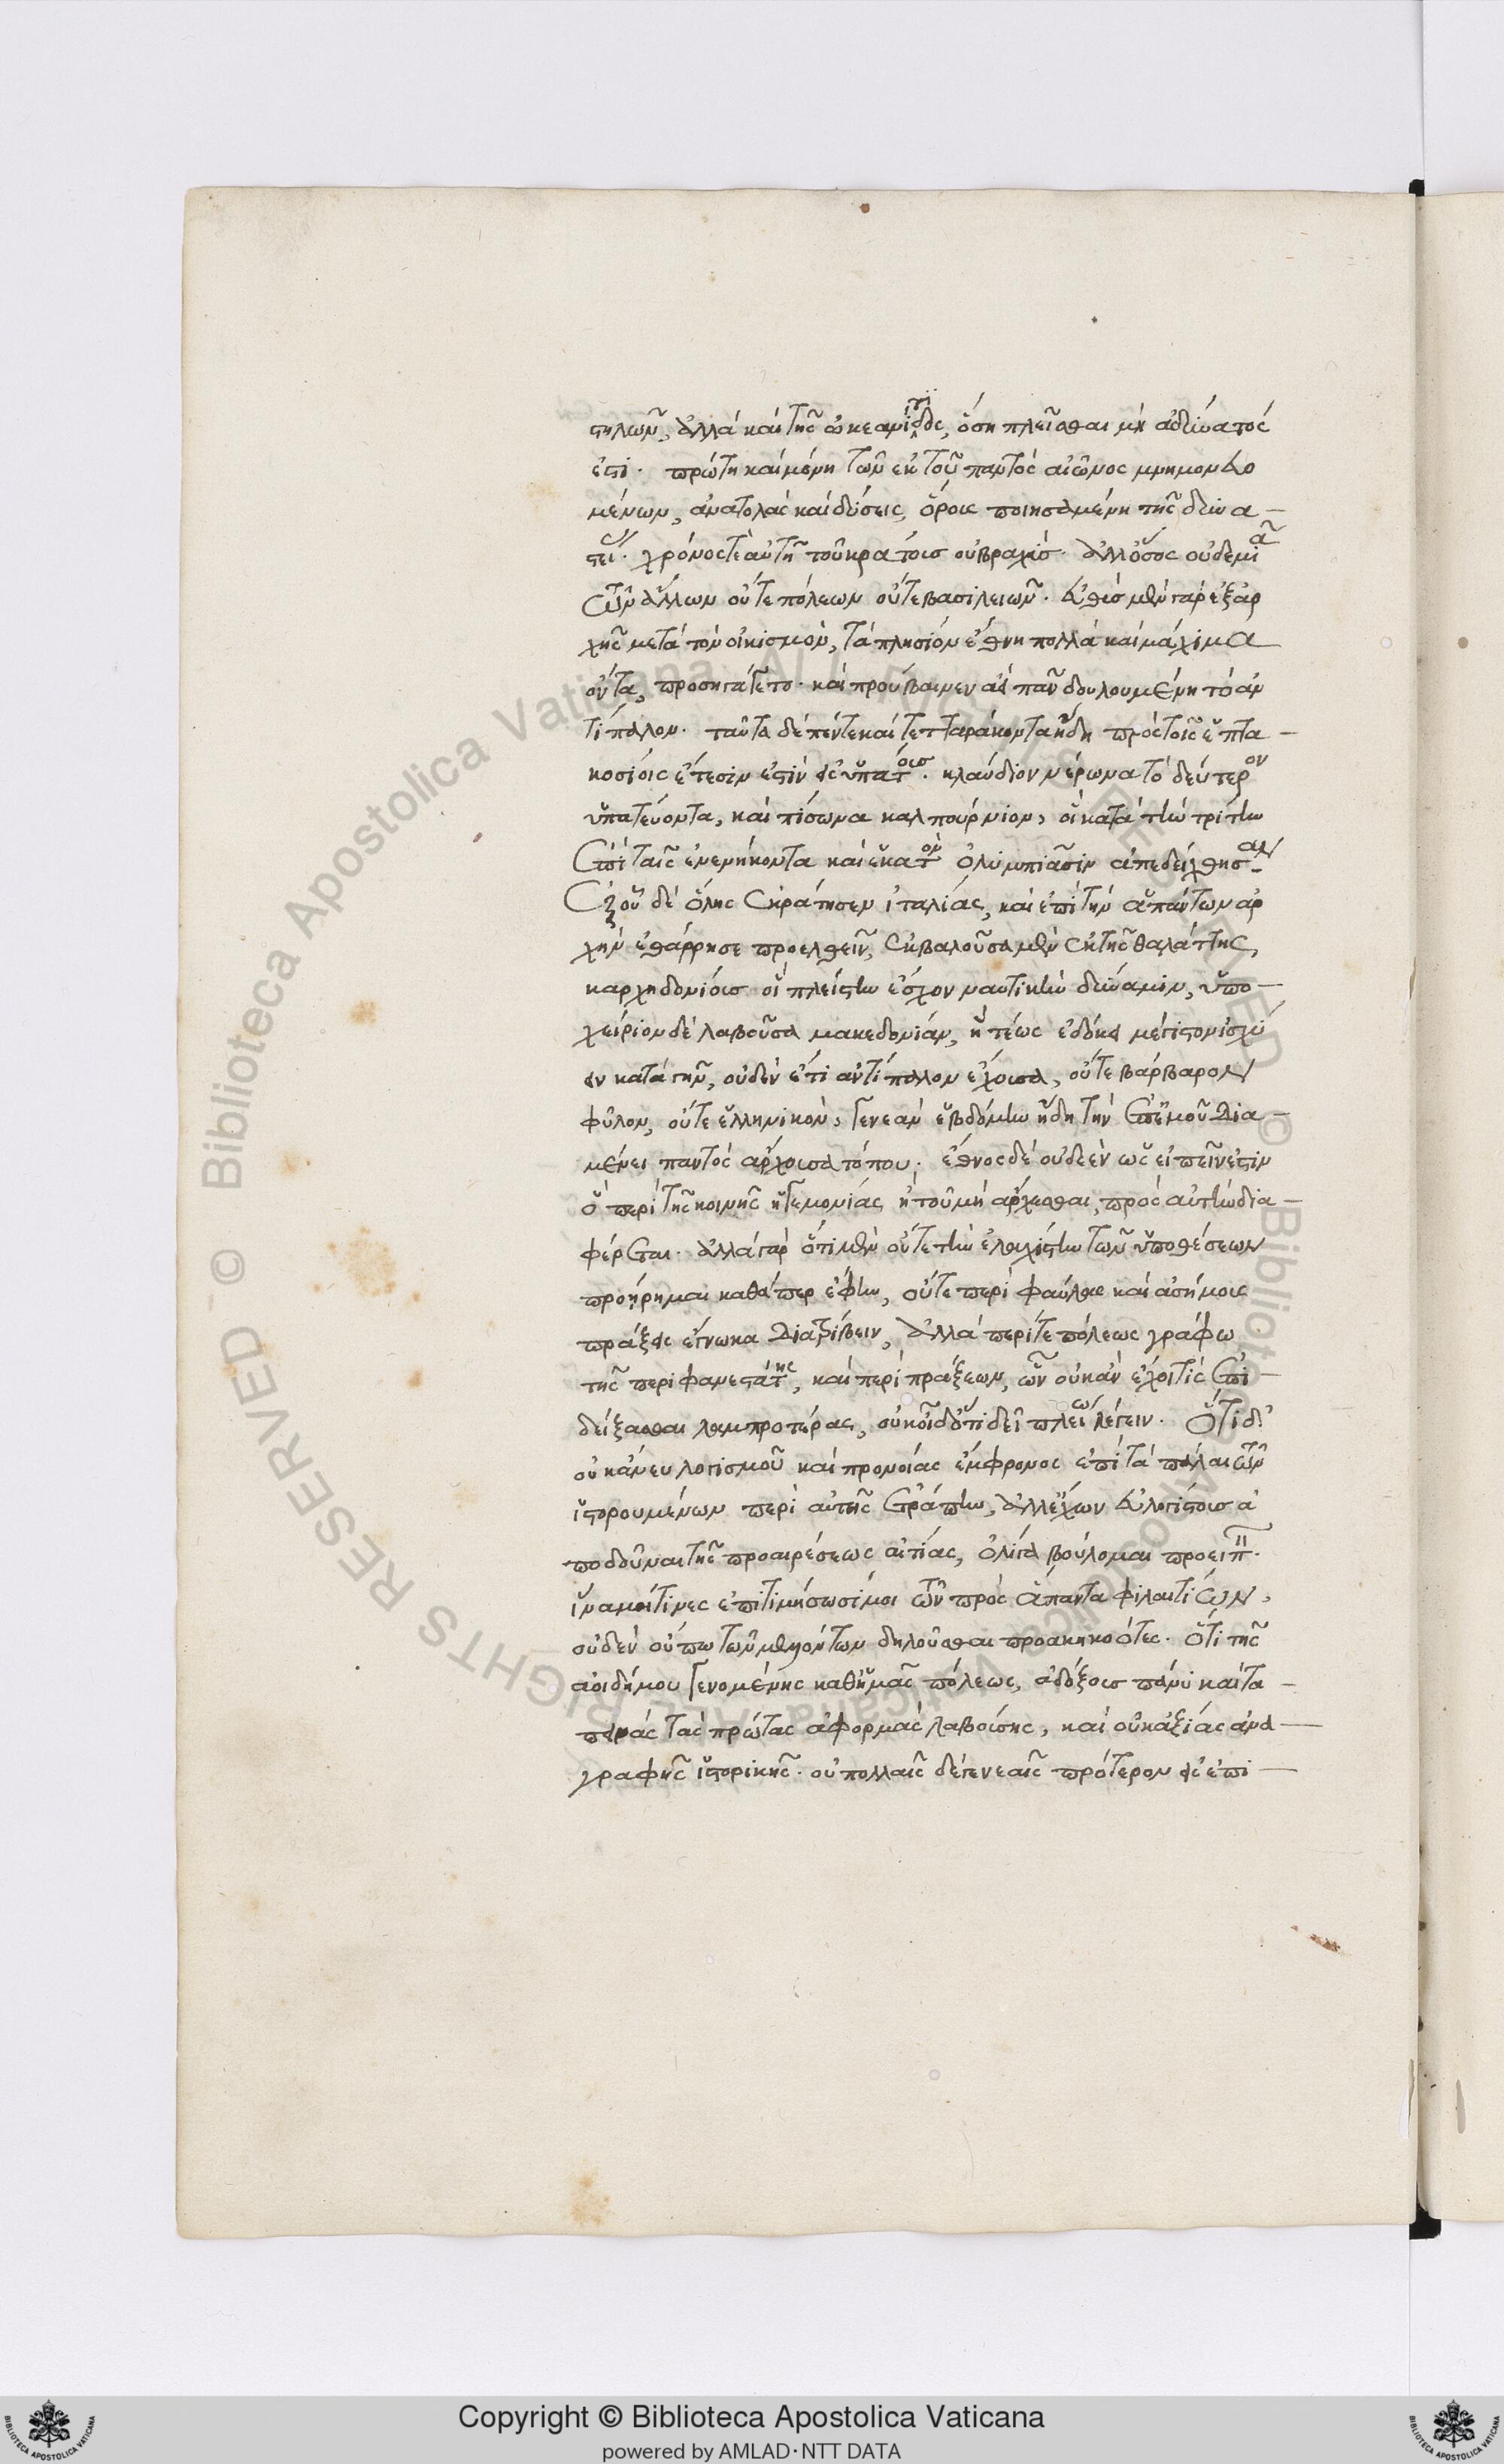 στηλῶν, ἀλλὰ καὶ τῆς ὠκεανίτιδος, ὅση πλεῖσθαι μὴ ἀδύνατός
ἐστι· πρώτη καὶ μόνη τῶν ἐκ τοῦ παντὸς αἰῶνος μνημονευο
μένων, ἀνατολὰς καὶ δύσεις, ὅρους ποιησαμένη τῆς δυνα-
στείας· χρόνος τὲ αὐτῇ τοῦ κράτους οὐ βραχύς· ἀλλ' ὅσος οὐδεμιᾷ
τῶν ἄλλων οὔτε πόλεων οὔτε βασιλειῶν. εὐθὺς μὲν γὰρ ἐξ ἀρ
χῆς μετὰ τὸν οἰκισμὸν, τὰ πλησίον ἔθνη πολλὰ καὶ μάχιμα
ὄντα, προσηγάγετο· καὶ προύβαινεν ἀεὶ πᾶν δουλουμένη τὸ ἀν
τίπαλον· ταῦτα δὲ πέντε καὶ τετταράκοντα ἤδη πρὸς τοῖς ἑπτα-
κοσίοις ἔτεσίν ἐστὶν εἰς ὑπάτους. κλαύδιον νέρωνα τὸ δεύτερον
ὑπατεύοντα, καὶ πίσωνα καλπούρνιον, οἳ κατὰ τὴν τρίτην
ἐπὶ ταῖς ἐνενήκοντα καὶ ἑκατὸν ὀλυμπιάσιν ἀπεδείχθησαν.
ἐξ οὗ δὲ ὅλης ἐκράτησεν ἰταλίας, καὶ ἐπὶ τὴν ἁπάντων ἀρ
χὴν ἐθάρρησε προελθεῖν, ἐκβαλοῦσα μὲν ἐκ τῆς θαλάττης,
καρχηδονίους οἳ πλείστην ἔσχον ναυτικὴν δύναμιν, ὑπο-
χείριον δὲ λαβοῦσα μακεδονίαν, ἣ τέως ἐδόκει μέγιστον ἰσχύ
ειν κατὰ γῆν, οὐδὲν ἔτι ἀντίπαλον ἔχουσα, οὔτε βάρβαρον
φῦλον, οὔτε ἑλληνικὸν, γενεὰν ἑβδόμην ἤδη τὴν ἐπ' ἐμοῦ δια-
μένει παντὸς ἄρχουσα τόπου· ἔθνος δὲ οὐδὲεν ὡς εἰπεῖν ἐστιν
ὃ περὶ τῆς κοινῆς ἡγεμονίας ἢ τοῦ μὴ ἄρχεσθαι, πρὸς αὐτὴν δια-
φέρεται· ἀλλὰ γὰρ ὅτι μὲν οὔτε τὴν ἐλαχίστην τῶν ὑποθέσεων
προῄρημαι καθάπερ ἔφην, οὔτε περὶ φαύλους καὶ ἀσήμους
πράξεις ἔγνωκα διατρίβειν, ἀλλὰ περί τε πόλεως γράφω
τῆς περιφανεστάτης, καὶ περὶ πράξεων, ὧν οὐκ ἂν ἔχοι τὶς ἐπι-
δείξασθαι λαμπροτέρας, οὐκ οἶδ' ὅτι δεῖ πλείω λέγειν. Ὅτι δ'
οὐκ ἄνευ λογισμοῦ καὶ προνοίας ἔμφρονος ἐπὶ τὰ πάλαι τῶν
ἱστορουμένων περὶ αὐτῆς ἐτράπην, ἀλλ' ἔχων εὐλογίστους ἀ
ποδοῦναι τῆς προαιρέσεως αἰτίας, ὀλίγα βούλομαι προειπεῖν.
ἵνα μή τινες ἐπιτιμήσωσί μοι τῶν πρὸς ἅπαντα φιλαιτίων,
οὐδὲν οὔπω τῶν μελλόντων δηλοῦσθαι προακηκοότες. ὅτι τῆς
ἀοιδήμου γενομένης καθ' ἡμᾶς πόλεως, ἀδόξους πάνυ καὶ τα-
πεινὰς τὰς πρώτας ἀφορμὰς λαβούσης, καὶ οὐκ ἀξίας ἀνα-
γραφῆς ἱστορικῆς· οὐ πολλαῖς δὲ γενεαῖς πρότερον εἰς ἐπι-
Copyright © Biblioteca Apostolica Vaticana
powered by AMLAD·NTT DATA